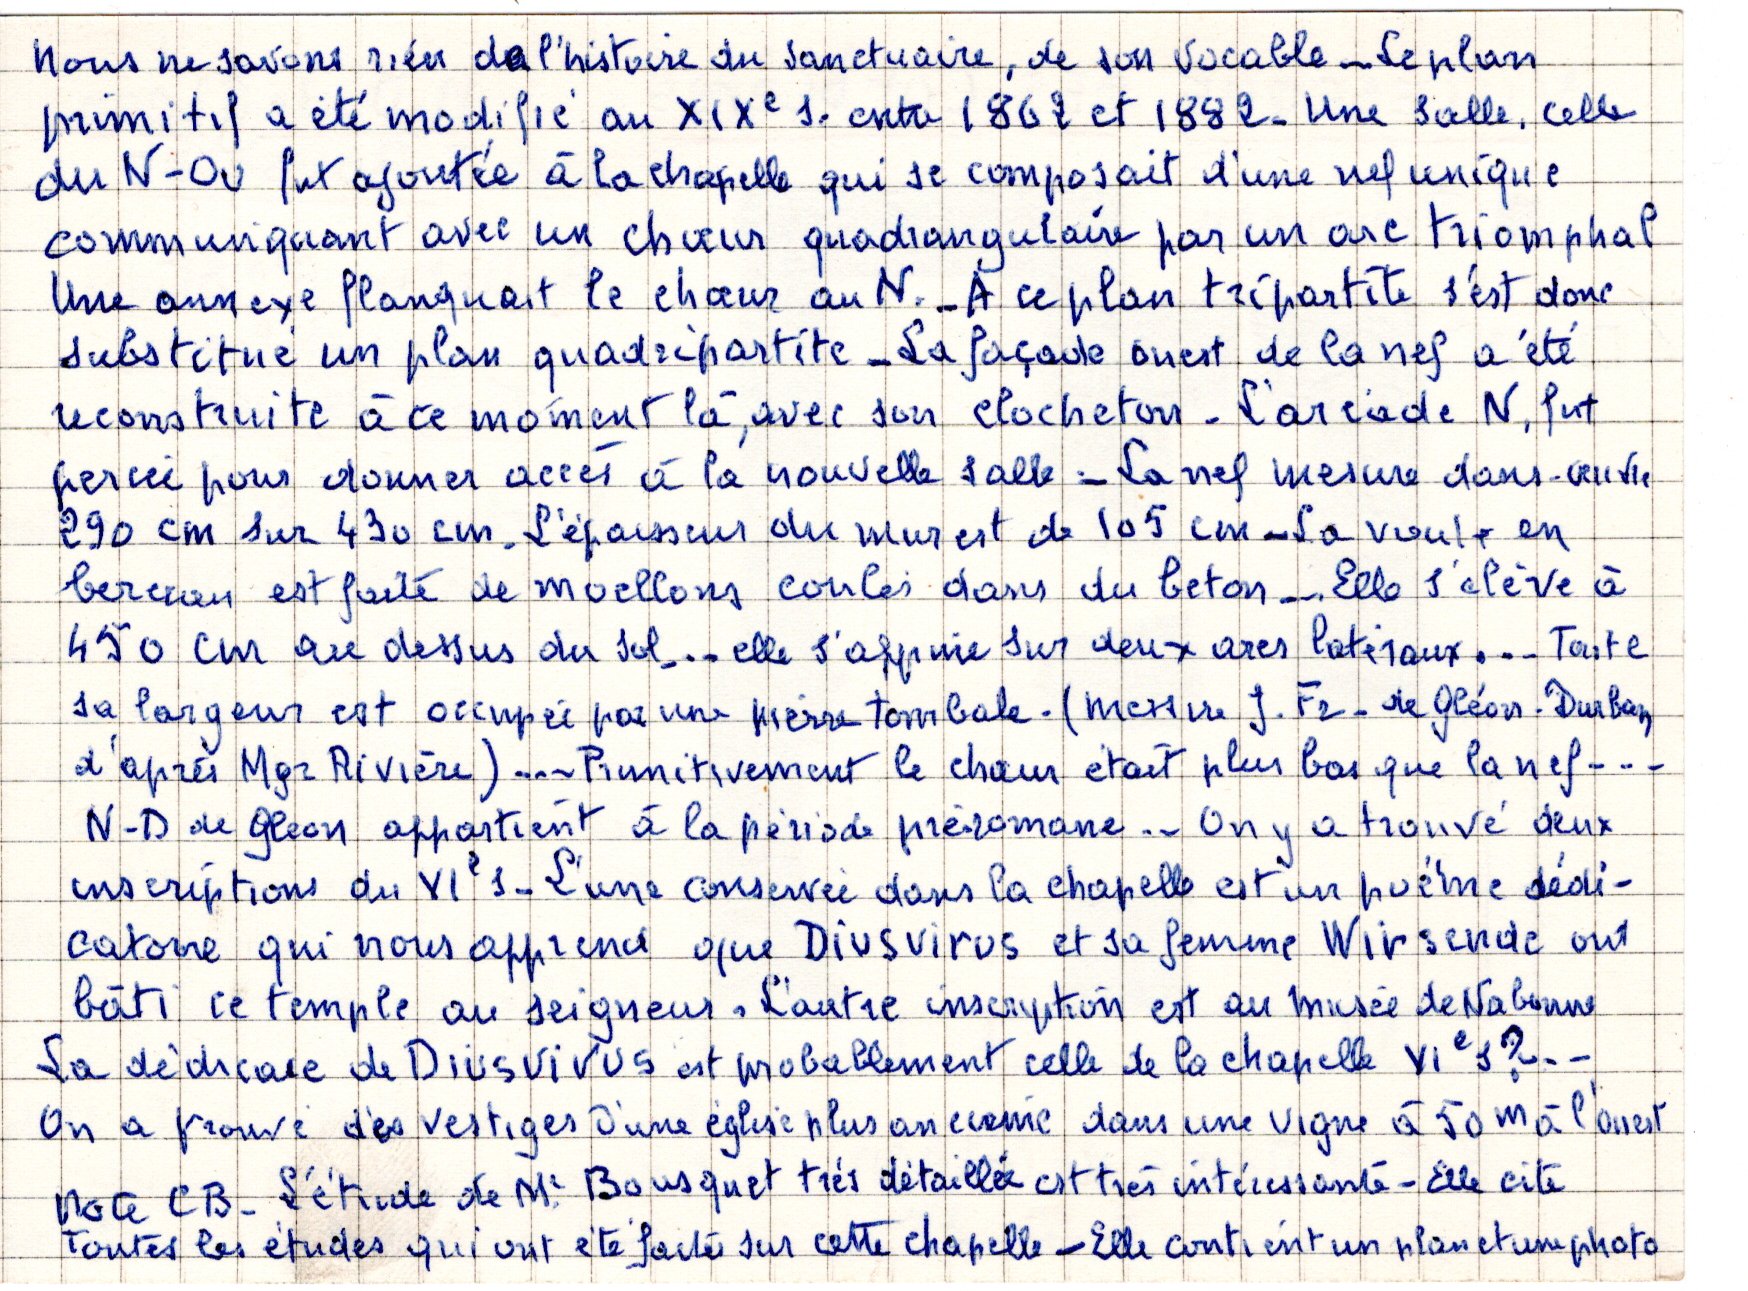 Nous ne savons rien de l'histoire du sanctuaire, de son vocable - Le plan
primitif a été modifié au XIXe s. entre 1862 et 1882 - Une salle, celle
du N-Ou fut ajoutée à la chapelle qui se composait d'une nef unique
communiquant avec un chœur quadrangulaire par un arc triomphal
Une annexe flanquait le chœur au N. - A ce plan tripartite s'est donc
substitué un plan quadripartite - La façade ouest de la nef a été
reconstruite à ce moment là, avec son clocheton - L'arcade N, fut
percée pour donner accès à la nouvelle salle - La nef mesure dans-œuvre
290 cm sur 430 cm. L'épaisseur du mur est de 105 cm - La voute en
berceau est faite de moellons coulés dans du beton -... Elle s'élève à
450 cm au dessus du sol... elle s'appuie sur deux arcs latéraux.... Toute
sa largeur est occupée par une pierre tombale. (messire J. Fr - de Gléon - Durban
d'après Mgr Rivière) .... Primitivement le chœur était plus bas que la nef - - -
N-D de Gléon appartient à la période préromane .. On y a trouvé deux
inscriptions du VIe s - L'une conservée dans la chapelle est un poème dédi-
catoire qui nous apprend que Diusvirus et sa femme Wirsende ont
bâti ce temple au seigneur. L'autre inscription est au musée de Nabonne
La dédicace de Diusvirus est probablement celle de la chapelle VIe s ? - -
On a trouvé des vestiges d'une église plus ancienne dans une vigne à 50 m à l'ouest
Note CB - L'étude de Mr Bousquet très détaillée est très intéressante - Elle cite
toutes les études qui ont été faites sur cette chapelle - Elle contient un plan et une photo